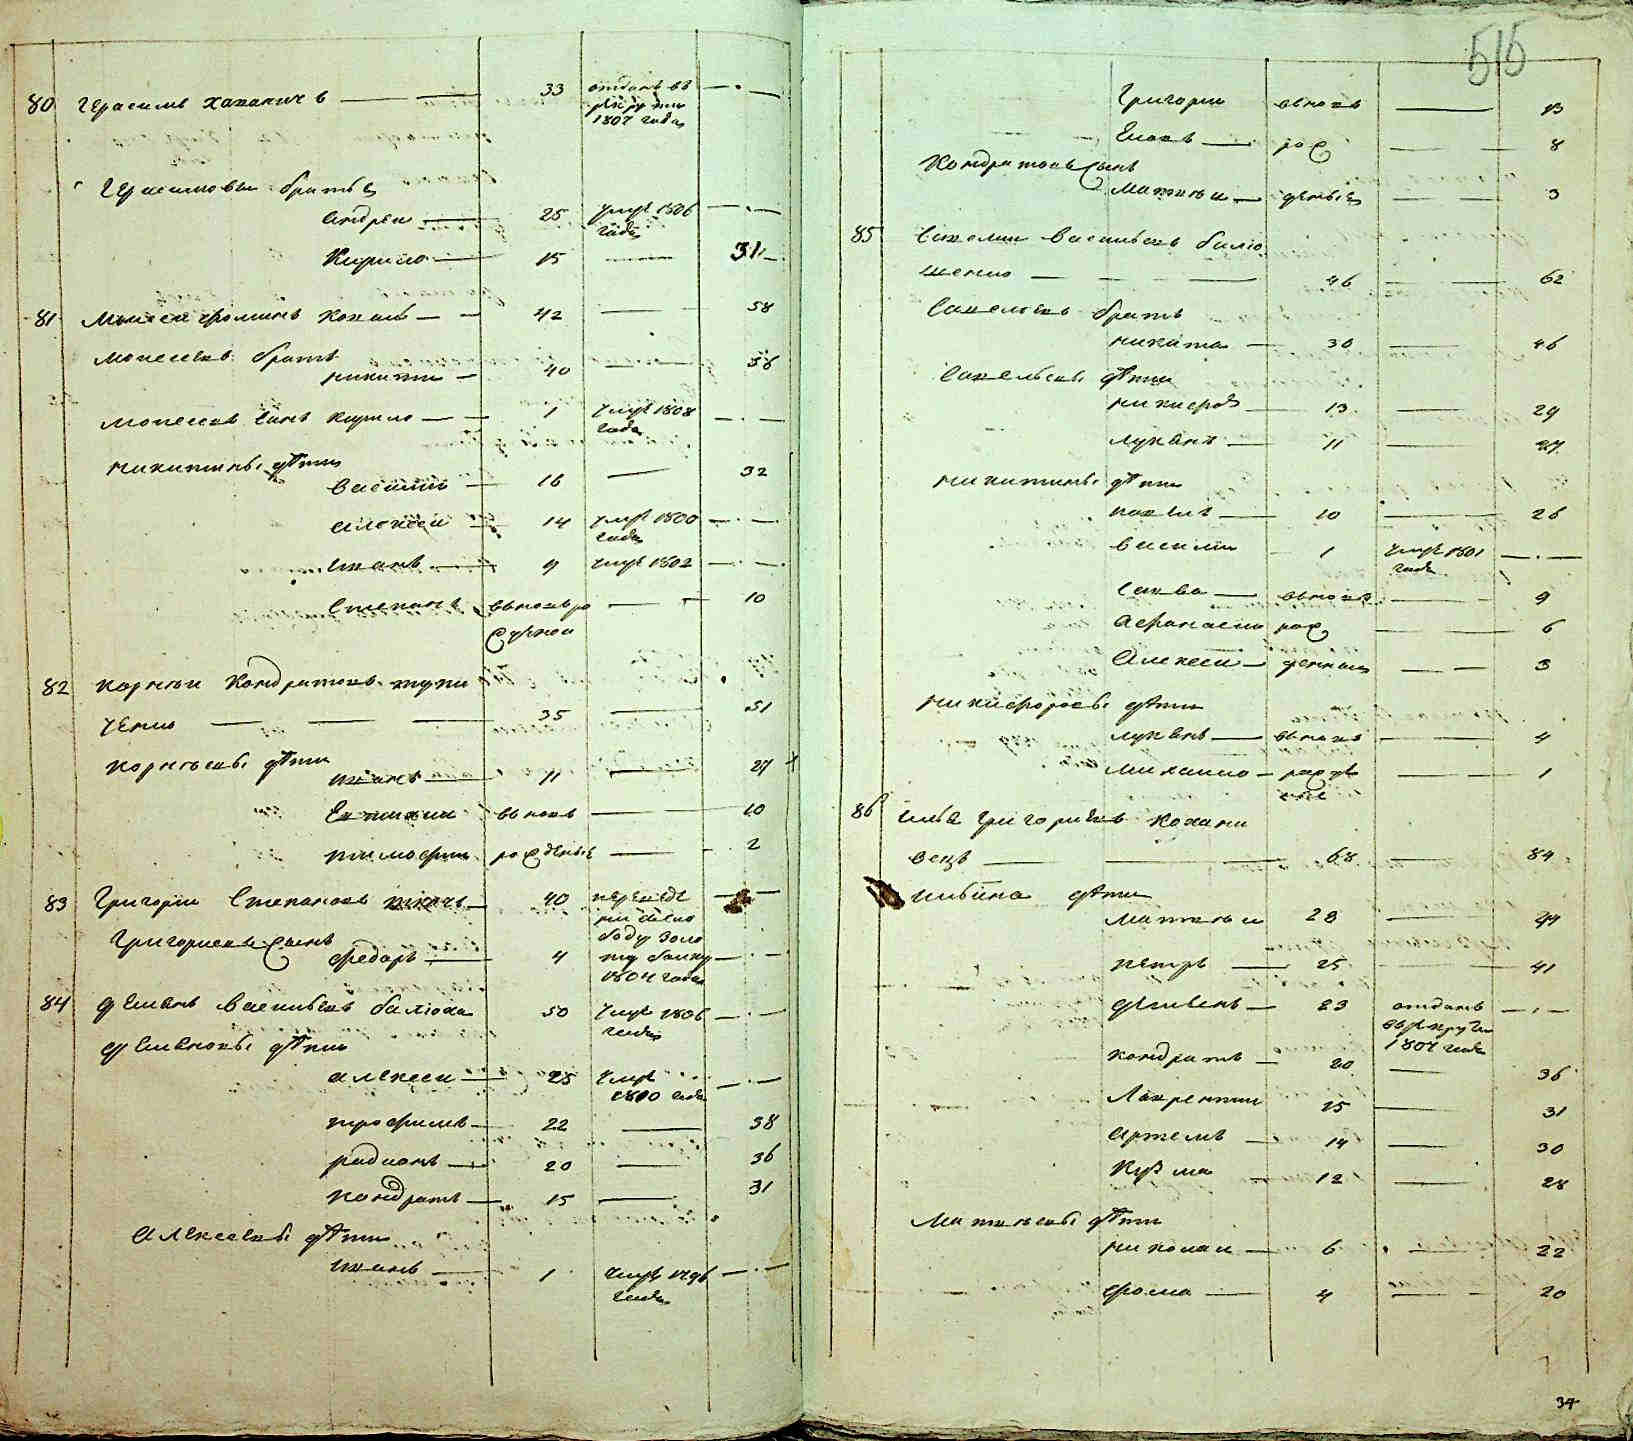 80 Герасимъ Хананичъ — — 33 отданъ въ
рекруты
1807 года
Герасимовы братья
Андреи — 25 умре 1806
года
Кирило — 15 — 31
81 Моисеи Фоминъ Кохань — — 42 — 58
Моисеевъ братъ
никита — 40 — 56
Моисеевъ сынъ Кирило — — 1 умре 1808
года
никитины дѣти
василии — 16 — 32
алексеи — 14 умре 1800
года
иванъ — 9 умре 1802
Степанъ вьновьро — 10
жденои
82 Корнѣи Кондратовъ
ченко — — — 35 — 51
Корнѣевы дѣти
иванъ — 11 — 27
Евтихии вьновь — 10
тимофеи рожденые — 2
83 Григории Степановъ ткачъ — 40 перешедъ
на сло
боду Золо
ту балку
1804 года
Григориевъ сынъ
федоръ — 4
84 демянъ васильевъ балюха 50 умре 1806
года
демяновы дѣти
алексеи — 25 умре
1810 года
трофимъ — 22 — 38
радионъ — 20 — 36
Кондратъ — 15 — 31
алексеевы дѣти
иванъ — 1 умре 1796
года
515
Григории вьновь — 13
Яковъ — рож — 8
Кондратовъ сынъ
Матвѣи — деныя — 3
85 Савелии васильевъ балю
шенко — — — 46 — 62
Савелиевъ братъ
никита — 30 — 46
Савельевы дѣти
никифоръ — 13 — 29
лукянъ — 11 — 27
никитины дѣти
павелъ — 10 — 26
василии 1 умре 1801
года
Савва — вьновь — 9
Афанасии рож — 6
Алексеи — денныя — 3
никифоровы дѣти
лукянъ — вьновь — 4
михаило — рожде — 1
ные
86 илья григориевъ Кохани
вецъ — — — 68 — 84
ильина дѣти
Матвѣи 28 — 44
петръ — 25 — 41
демянъ — 23 отданъ
врекруты
1807 года
кондратъ — 20 — 36
Лаврентии 15 — 31
артемъ — 14 — 30
Кузма 12 — 28
Матвѣевы дѣти
николаи — 6 — 22
фома — 4 — 20
34